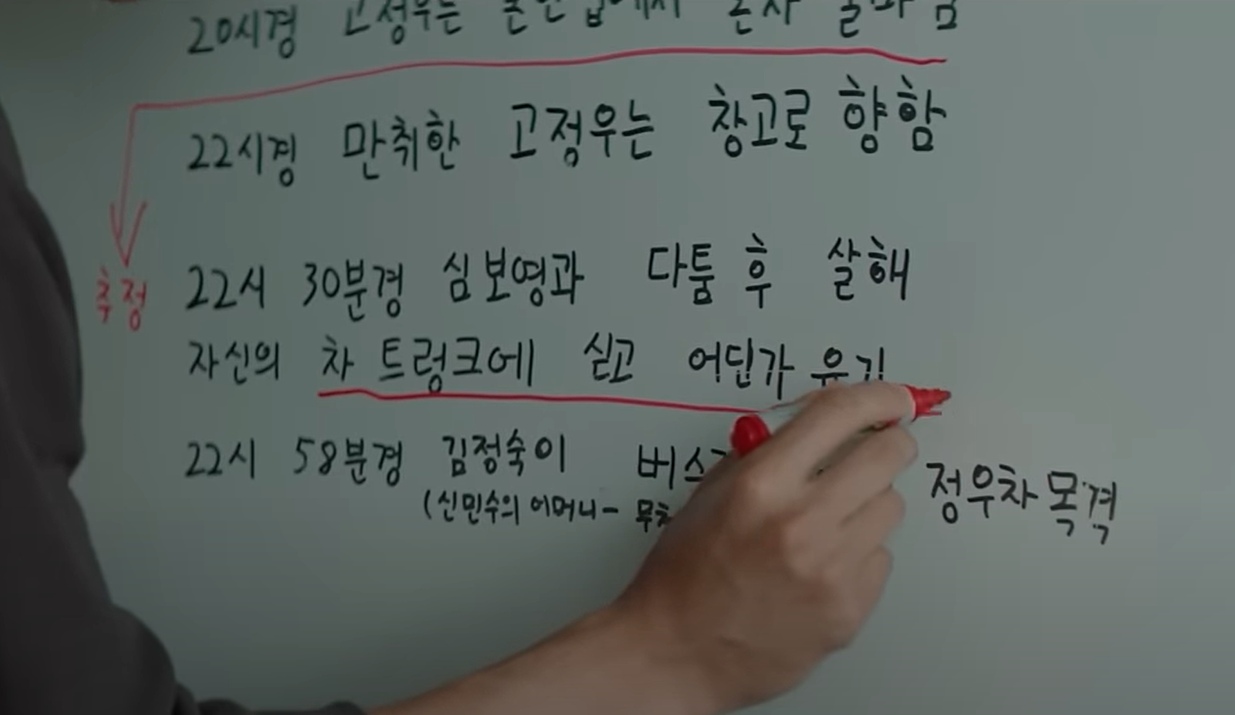 20시경 고정우는 본인 집에서 혼자 술마심
22시경 만취한 고정우는 창고로 향함
추정 22시 30분경 심보영과 다툼 후 살해
자신의 차 트렁크에 싣고 어딘가 유기
22시 58분경 김정숙이 버스 정우차 목격
(신민수의 어머니-